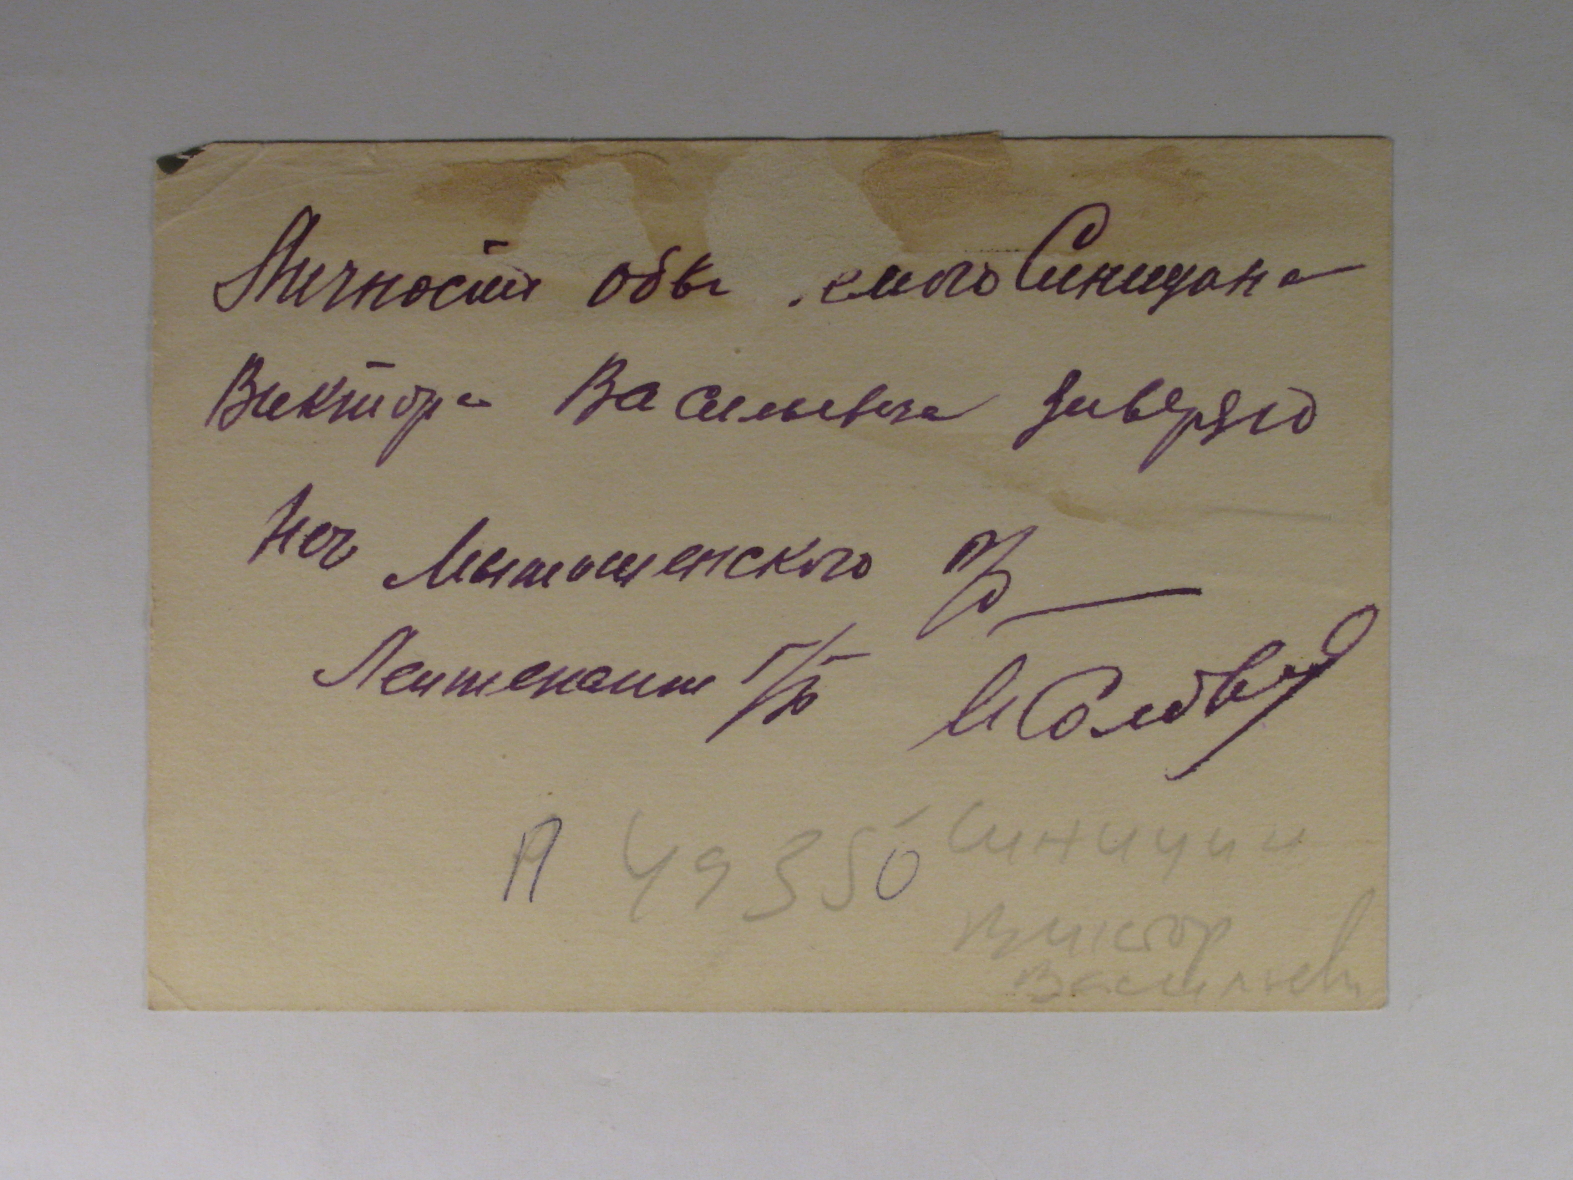 Личность обви емого Синицына
Виктора Васильевича заверяю
Нач Мытищенского
Лейтенант Г/Б И Соловьев
П 49350 Синицын
Виктор
Васильев